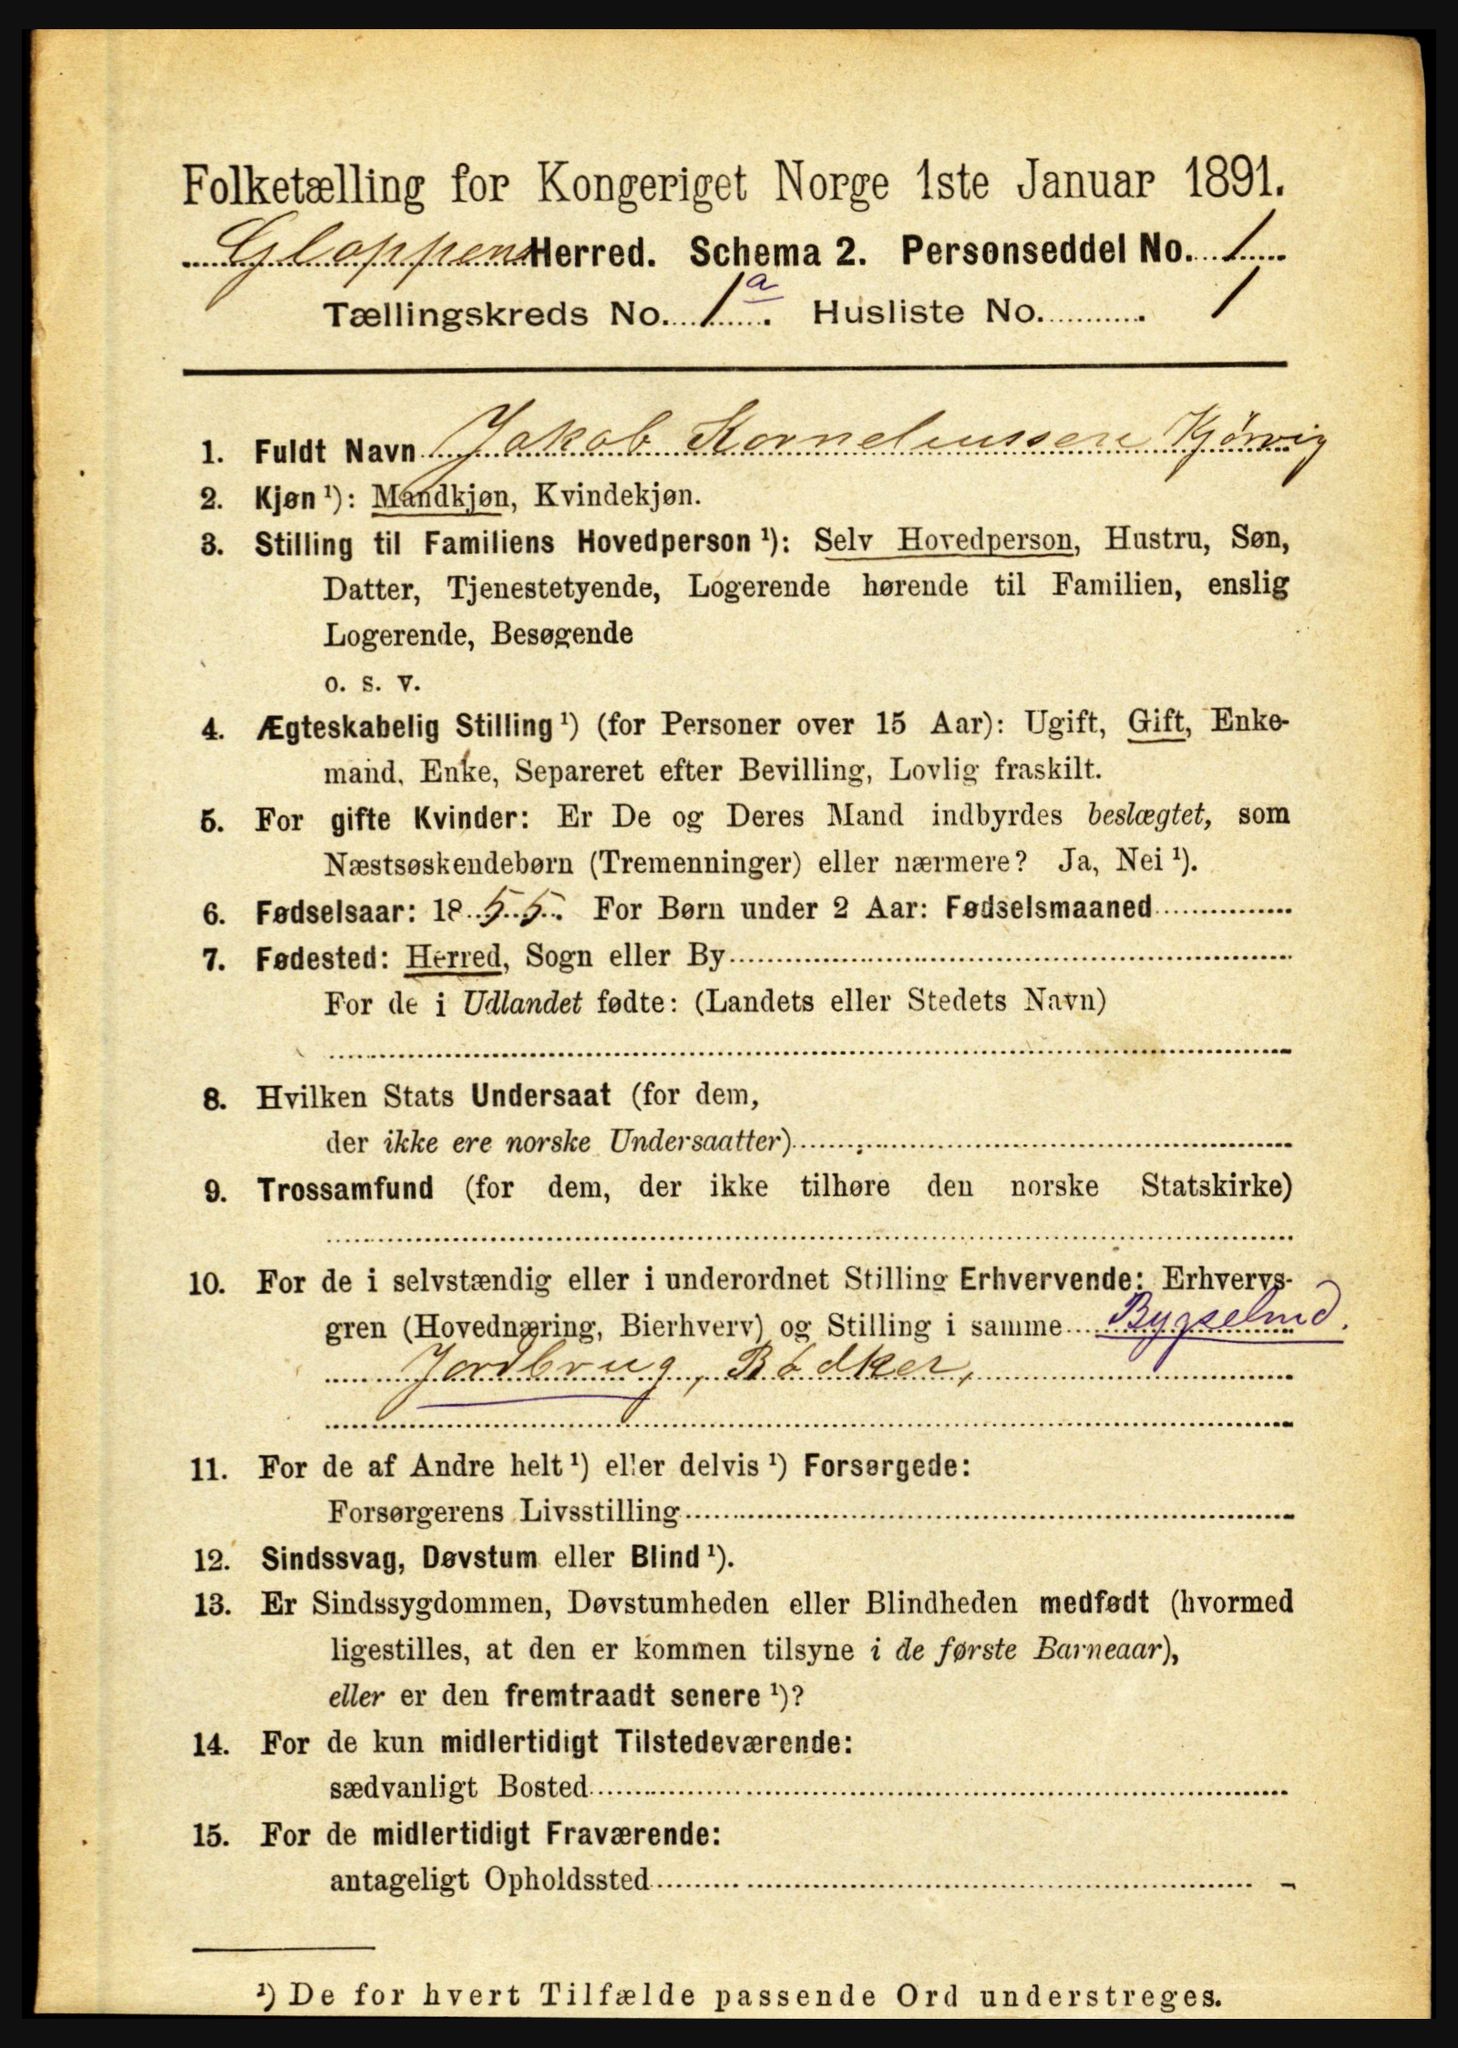 Folketælling for Kongeriget Norge 1ste Januar 1891.
Gloppens Herred. Schema 2. Personseddel No. 1
Tællingskreds No. 1a. Husliste No. 1
1. Fuldt Navn Jakob Korneliussen Kjørvig
2. Kjøn ¹): Mandkjøn, Kvindekjøn.
3. Stilling til Familiens Hovedperson ¹): Selv Hovedperson, Hustru, Søn,
Datter, Tjenestetyende, Logerende hørende til Familien, enslig
Logerende, Besøgende
o. s. v.
4. Ægteskabelig Stilling ¹) (for Personer over 15 Aar): Ugift, Gift, Enke-
mand, Enke, Separeret efter Bevilling, Lovlig fraskilt.
5. For gifte Kvinder: Er De og Deres Mand indbyrdes beslægtet, som
Næstsøskendebørn (Tremenninger) eller nærmere? Ja, Nei ¹).
6. Fødselsaar: 1855. For Børn under 2 Aar: Fødselsmaaned
7. Fødested: Herred, Sogn eller By
For de i Udlandet fødte: (Landets eller Stedets Navn)
8. Hvilken Stats Undersaat (for dem,
der ikke ere norske Undersaatter)
9. Trossamfund (for dem, der ikke tilhøre den norske Statskirke)
10. For de i selvstændig eller i underordnet Stilling Erhvervende: Erhvervs-
gren (Hovednæring, Bierhverv) og Stilling i samme Bygselmd.
Jordbrug, Bødker,
11. For de af Andre helt ¹) eller delvis ¹) Forsørgede:
Forsørgerens Livsstilling
12. Sindssvag, Døvstum eller Blind ¹).
13. Er Sindssygdommen, Døvstumheden eller Blindheden medfødt (hvormed
ligestilles, at den er kommen tilsyne i de første Barneaar),
eller er den fremtraadt senere ¹)?
14. For de kun midlertidigt Tilstedeværende:
sædvanligt Bosted
15. For de midlertidigt Fraværende:
antageligt Opholdssted
¹) De for hvert Tilfælde passende Ord understreges.